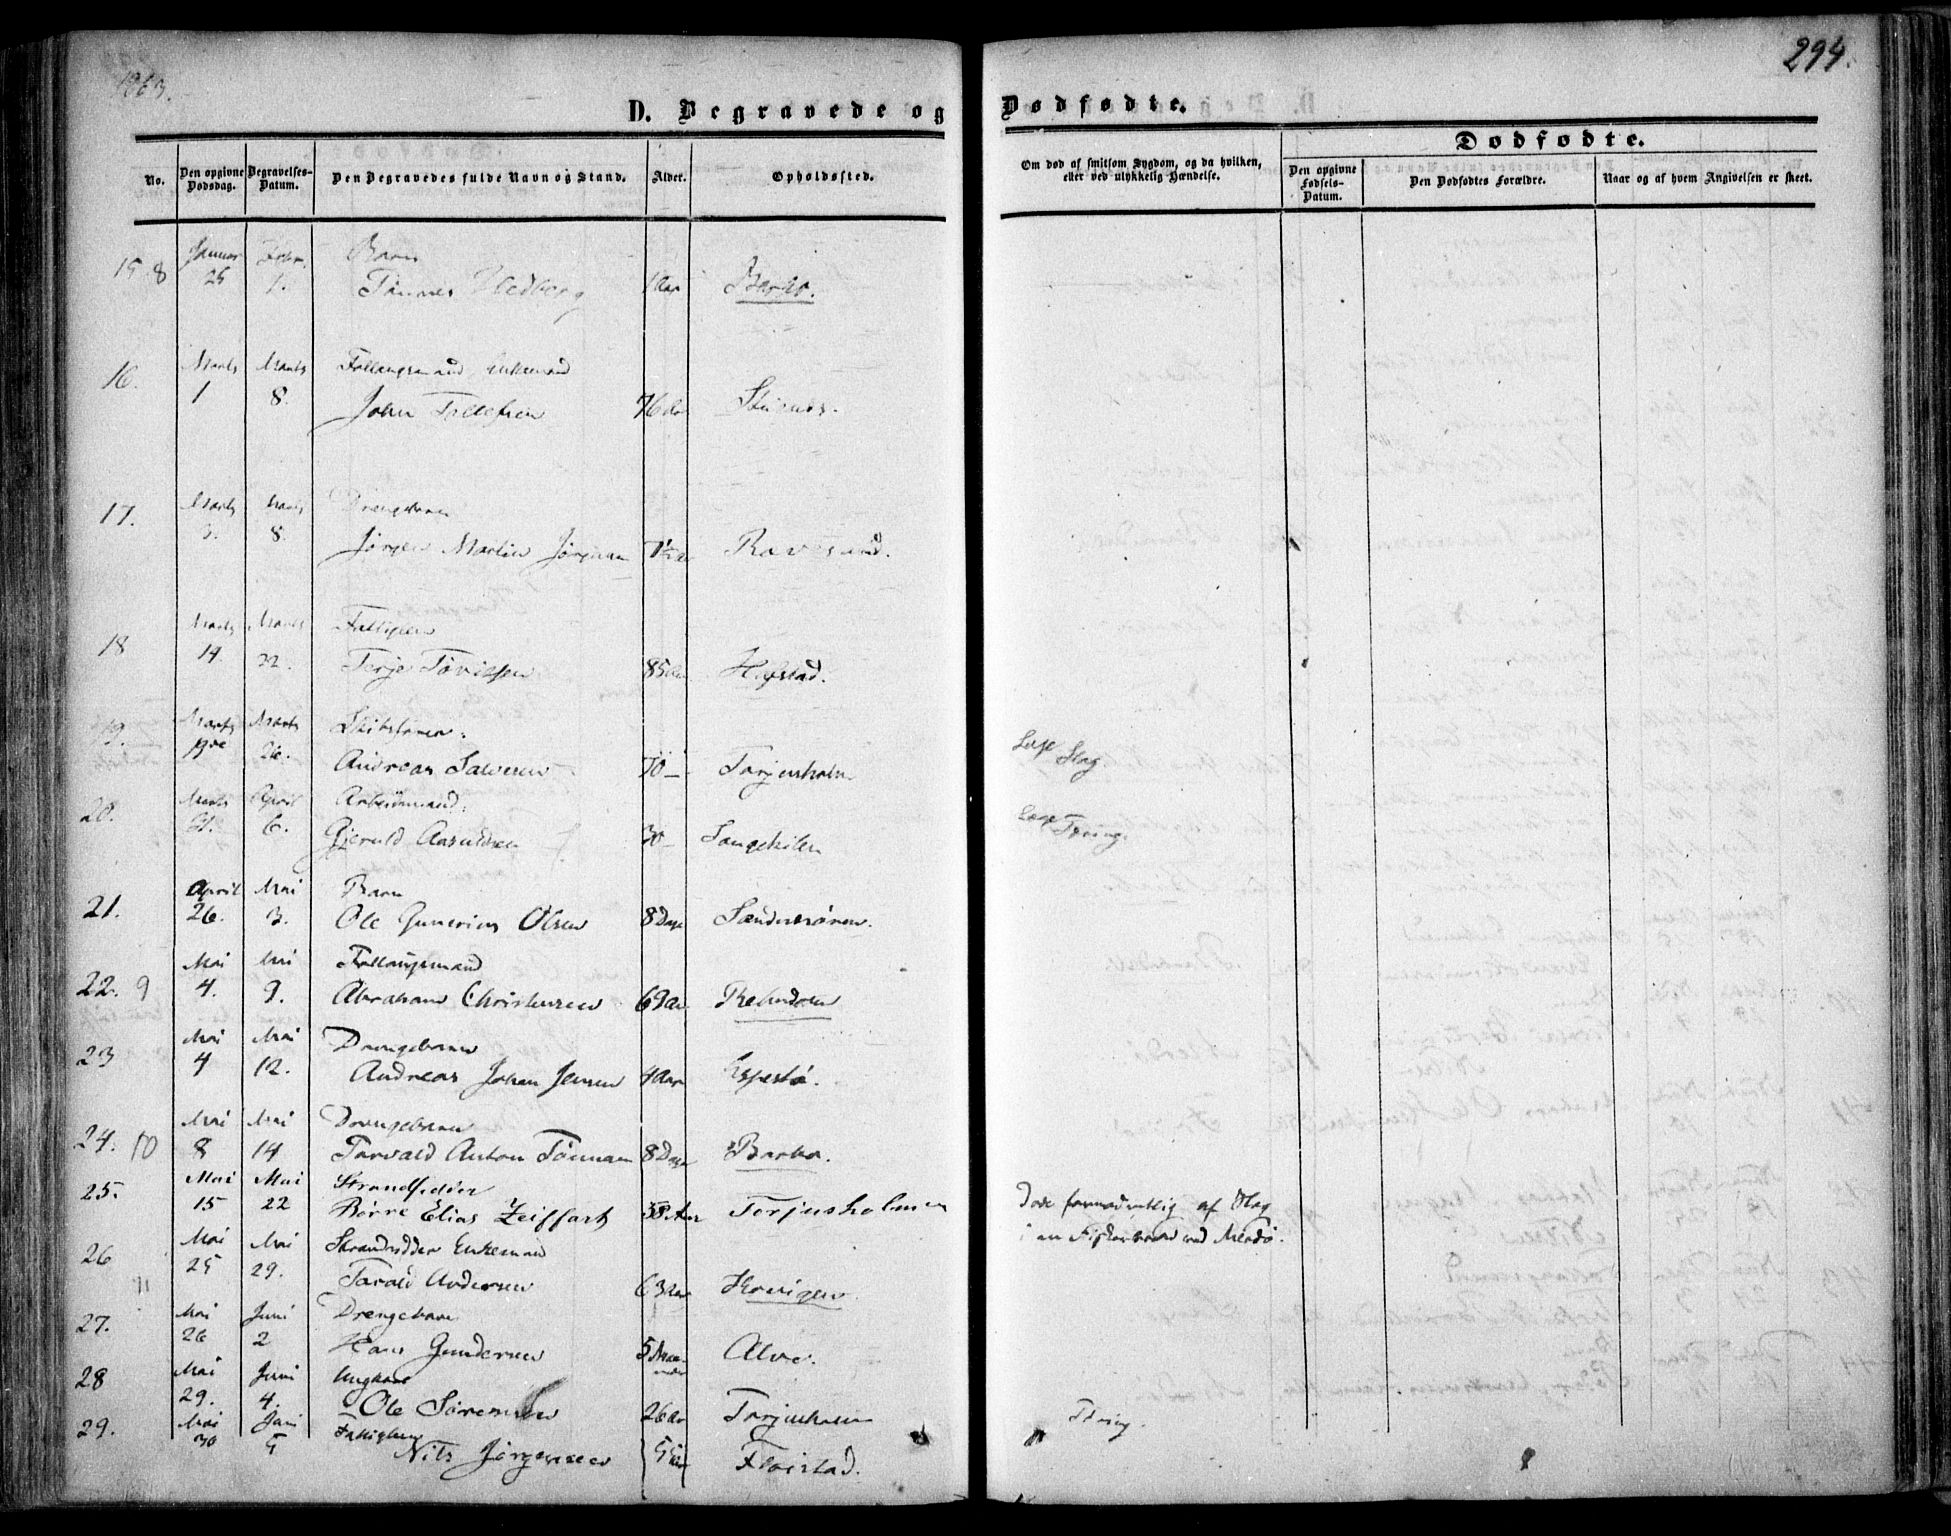 1863.
294.
D. Begravede og Dødfødte.
No.
Den opgivne Dødsdag.
Begravelses-Datum.
Den Begravedes fulde Navn og Stand.
Alder.
Opholdssted.
Om død af smitsom Sygdom, og da hvilken, eller ved ulykkelig Hændelse.
Dødfødte.
Den opgivne Fødsels-Datum.
Den Dødfødtes Forældre.
Naar og af hvem Angivelsen er skeet.
15 8 Januar 25 Febr. 1. Barn
Tönnes Hedberg 1 Aar Barbo.
16. Marts 1 Marts 8. Enkemand
John Tallefsen 76 Aar
17. Marts 3. Marts 8. Drengebarn
Jørgen Martin Jørgensen Ravesund.
18 Marts 14. Marts 22. Fattiglem
Terje 85 Aar
19. Marts Marts 26.
Andreas Salvesen 70 – Torjusholm Slag.
20. Marts 31. April 6. Arbeidsmand:
Gjeruld Aasuldsen 30 – Songekilen Tæring.
21. April 26. Mai 3. Barn
Ole Gunerius Olsen 8 Dage
22. 9 Mai 4. Mai 9.
Abraham Christensen 69 Aar
23 Mai 4 Mai 12. Drengebarn
Andreas Johan Jensen 4 Aar
24. 10 Mai 8 Mai 14 Drengebarn
Torvald Anton 8 Dage Barbo.
25. Mai 15 Mai 22 Strandsidder
Börre Elias Zeiffart 38 Aar Torjusholmen Døde formodentlig af Slag
i en ved Merdø.
26 11 Mai 25 Mai 29. Strandsidder Enkemand
Tarald Andersen 63 Aar
27. Mai 26 Juni 2 Drengebarn
Hans Gundersen 5 Maaneder Alve.
28 Mai 29. Juni 4. Ungkarl
Ole Sörensen 26 Aar Torjusholm Tæring.
29. Mai 30 Juni 5 Fattiglem
Nils Jörgensen Fløistad.